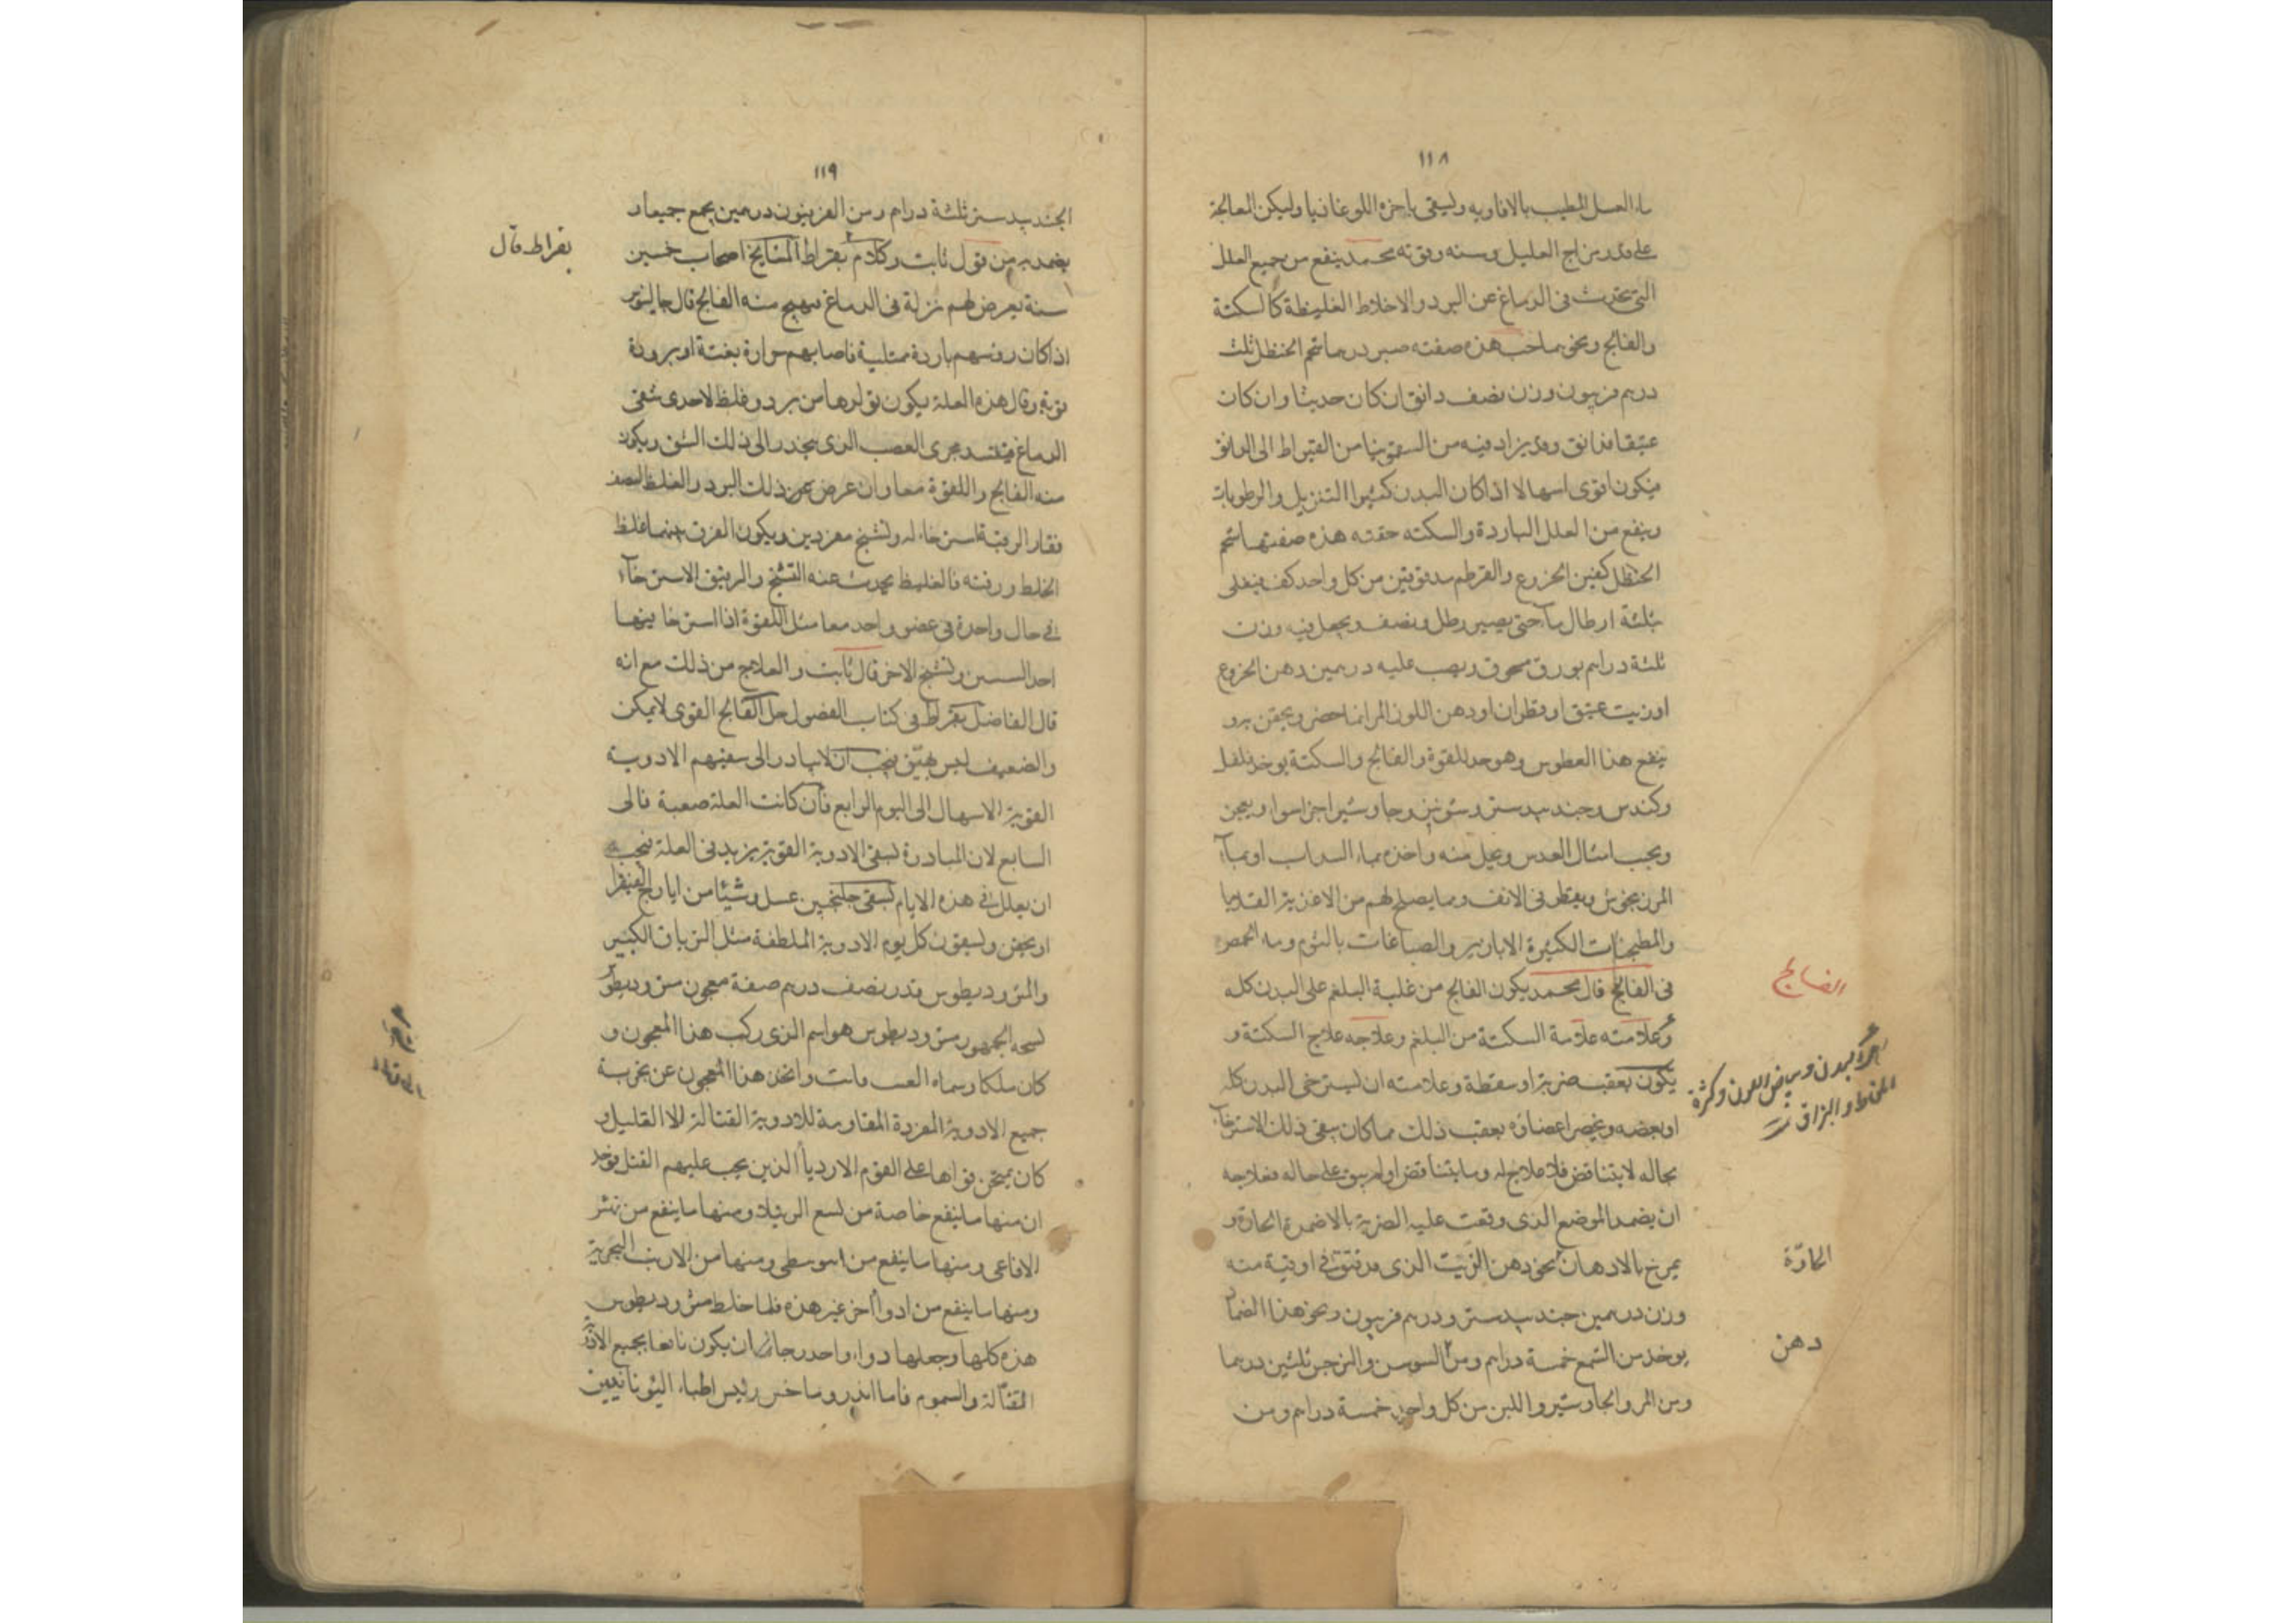 ١١٨
ماء العسل المطيب بالافاويه وليسقى باخره اللوغاذيا وليكن المعالجة
على قدر مزاج العليل وسنه وقوته محمد ينفع من جميع العلل
التى تحدث فى الدماغ عن البرد والاخلاط الغليظة كالسكتة
والفالج ونحوهما حب هذه صفته صبر درهما شحم الحنظل ثلث
درهم فربيون وزن نصف دانق ان كان حديثا وان كان
عتيقا فدانق وقد يزاد فيه من السقمونيا من القيراط الى الدانق
فيكون اقوى اسهالا اذا كان البدن كثيرا التنزيل والرطوبات
وينفع من العلل الباردة والسكته حقنه هذه صفتها شحم
الحنظل كفين الخروع والقرطم مدقوقين من كل واحد كف فيغلى
بثلثة ارطال مآ حتى يصير رطل ونصف ويجعل فيه وزن
ثلثة دراهم بورق مسحوق ويصب عليه درهمين دهن الخروع
اوزيت عتيق او قطران او دهن اللوز المر ايها حضر ويحقن به و
ينفع هذا العطوس وهو جيد للقوة والفالج والسكتة يوخذ فلفل
وكندس وجندبيدستر وشونيز وجاوشير اجزا سوا ويعجن
ويحبب امثال العدس ويحل منه واحده بماء السداب او بمآء
المرزنجوش ويقطر فى الانف ومما يصلح لهم من الاغذية القلايا
والمطجنات الكثيرة الابازير والصباغات بالثوم وماء الحمص
الفالج
فى الفالج قال محمد يكون الفالج من غلبة البلغم على البدن كله
وعلامته علامة السكتة من البلغم وعلاجه علاج السكتة و
البدن وبياض اللون وكثرة
المخاط والبزاق
يكون بعقب ضربة او سقطة وعلامته ان يسترخى البدن كله
او بعضه ويخص اعضاؤه بعقب ذلك مما كان بقى ذلك الاسترخآء
بحاله لا يتناقص فلا علاج له وما يتناقص اولم يبق على حاله فعلاجه
ان يضمد الموضع الذى وقعت عليه الضربة بالاضمدة الحادة و
الحادّة
يمرخ بالادهان نحو دهن الزيت الذى قد فتق فى اوقية منه
وزن درهمين جندبيدستر ودرهم فربيون ونحو هذا الضماد
دهن
يوخذ من الشمع خمسة دراهم ومن السوسن والنرجس ثلثين درهما
ومن المر والجاوشير واللبن من كل واحد خمسة دراهم ومن
١١٩
الجندبيدستر ثلثة دراهم ومن الفربيون درهمين يجمع جميعا و
بقراط قال
يضمد به من قول ثابت وكلام بقراط المشايخ اصحاب خمسين
سنة يعرض لهم نزلة فى الدماغ يهيج منه الفالج قال جالينوس
اذا كان روسهم باردة ممتلية فاصابهم حرارة بغتة او برودة
قوية وقال هذه العلة يكون تولدها من برد وغلظ لاحدى شقى
الدماغ فيفسد مجرى العصب الذى ينحدر الى ذلك الشق ويكون
منه الفالج واللقوة معا وان عرض عن ذلك البرد والغلظ لنصف
فقار الرقبة استرخاء له وتشنج مفردين ويكون الفرق بينهما غلظ
الخلط ورقته فالغليظ يحدث عنه التشنج والرقيق الاسترخآء
فى حال واحدة فى عضو واحد معا مثل اللقوة اذا استرخا فيها
احد الشقين وتشنج الاخر قال ثابت والعلاج من ذلك مع انه
قال الفاضل بقراط فى كتاب الفصول حل الفالج القوى لا يمكن
والضعيف ليس بهيّن يجب ان لا يبادر الى سقيهم الادوية
القوية الاسهال الى اليوم الرابع فان كانت العلة صعبة فالى
السابع لان المبادرة لسقى الادوية القوية يزيد فى العلة فيجب
ان يعلل فى هذه الايام لسقى جلنجبين عسل وشيئا من ايارج الفيقرا
او يحقن ويسقون كل يوم الادوية الملطفة مثل الترياق الكبير
والمثروديطوس قدر نصف درهم صفة معجون مثروديطوس
نسخه الجمهور مثروديطوس هو اسم الذى ركب هذا المعجون و
كان ملكا وسماه وامتحن هذا المعجون عن تجربة
جميع الادوية المفردة المقاومة للادوية القتالة الا القليل و
كان يمتحن قواها على القوم الاردياء الذين يجب عليهم القتل فوجد
ان منها ما ينفع خاصة من لسع الرتيلا ومنها ما ينفع من نهش
الافاعى ومنها ما ينفع من ومنها من الارنب البحرية
ومنها ما ينفع من ادواء اخر غير هذه فلما خلط مثروديطوس
هذه كلها وجعلها دواء واحد رجا ان يكون نافعا بجميع الادوية
القتّالة والسموم فاما اندروماخس رئيس اطباء اليونانيين